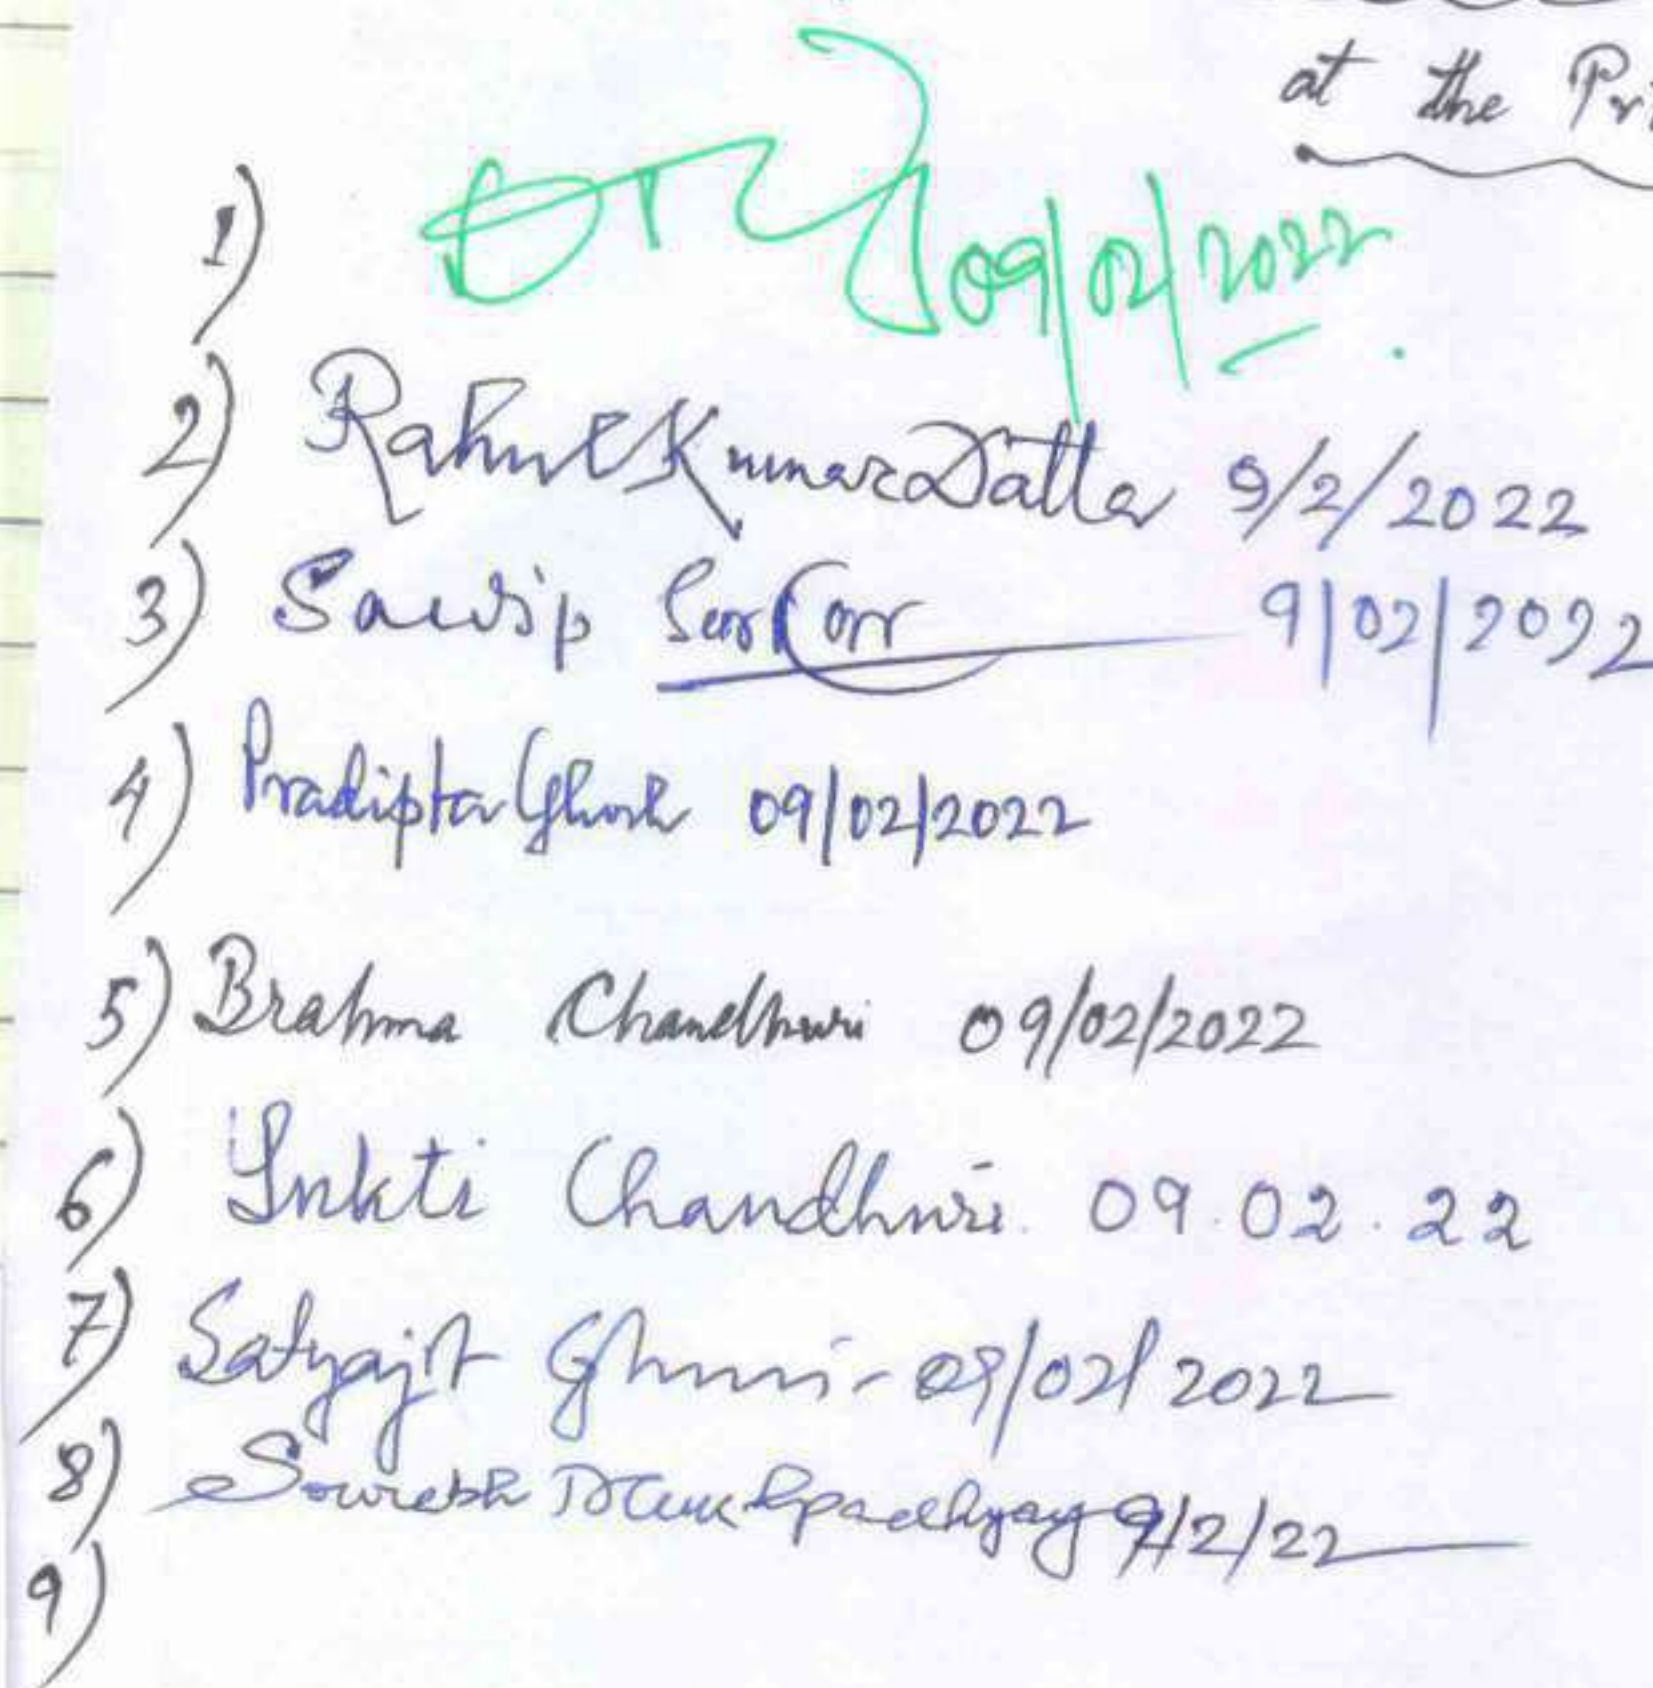 at the
1) 09/02/2022.
2) Rahul Kumar Datta 9/2/2022
3) Sandip Sarkar 9/02/2022
4) Pradipta Ghosh 09/02/2022
5) Brahma Chaudhuri 09/02/2022
6) Sukti Chaudhuri. 09.02.22
7) Satyajit 09/02/2022
8) 9/2/22
9)